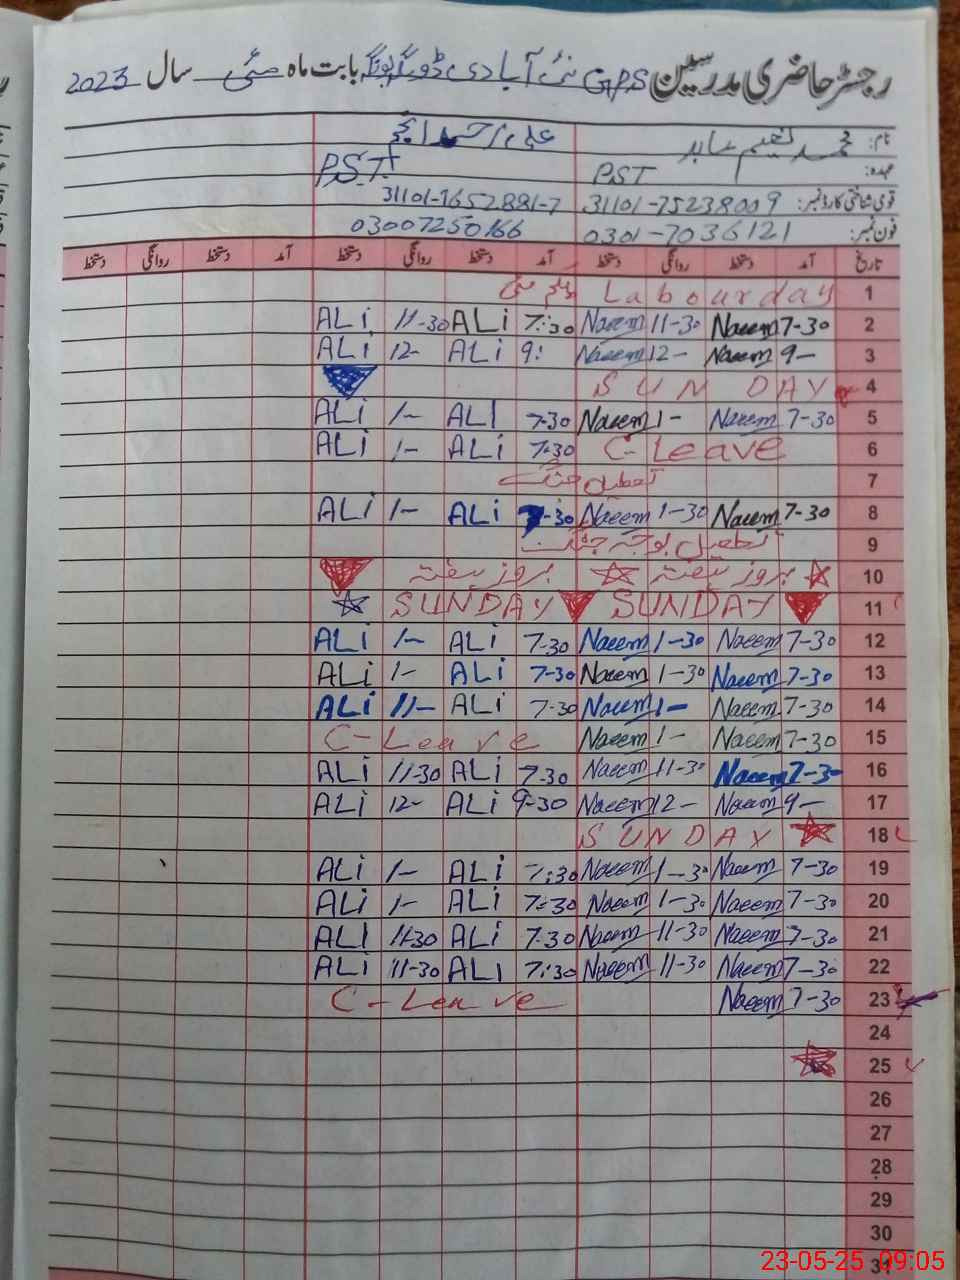 رجسٹر حاضری مدرسین GPS نئی آبادی ڈونگہ بونگہ بابت ماہ مئی سال 2023
نام: محمد نعیم صابر علی احمد
عہدہ: PST PST
قومی شناختی کارڈ نمبر: 31101-75238009 31101-1652881-7
فون نمبر: 0301-7036121 03007250166
تاریخ آمد دستخط روانگی دستخط آمد دستخط روانگی دستخط آمد دستخط روانگی دستخط
1 Labour day یکم مئی
2 7-30 Naeem 11-30 Naeem 7:30 ALi 11-30 ALi
3 9- Naeem 12- Naeem 9: ALi 12- ALi
4 SUN DAY
5 7-30 Naeem 1- Naeem 7-30 ALI 1- ALi
6 C-Leave 7-30 ALi 1- ALi
7 تعطیل
8 7-30 Naeem 1-30 Naeem 7-30 ALi 1- ALi
9 تعطیل بوجہ جنگ
10 بروز ہفتہ بروز ہفتہ
11 SUNDAY SUNDAY
12 7-30 Naeem 1-30 Naeem 7-30 ALi 1- ALi
13 7-30 Naeem 1-30 Naeem 7-30 ALi 1- ALi
14 7-30 Naeem 1- Naeem 7-30 ALi 11- ALi
15 7-30 Naeem 1- Naeem C-Leave
16 7-30 Naeem 11-30 Naeem 7-30 ALi 11-30 ALi
17 9- Naeem 12- Naeem 9-30 ALi 12- ALi
18 SUNDAY
19 7-30 Naeem 1-30 Naeem 7:30 ALi 1- ALi
20 7-30 Naeem 1-30 Naeem 7:30 ALi 1- ALi
21 7-30 Naeem 11-30 Naeem 7-30 ALi 11-30 ALi
22 7-30 Naeem 11-30 Naeem 7:30 ALi 11-30 ALi
23 7-30 Naeem C-Leave
24
25
26
27
28
29
30
31
23-05-25 09:05